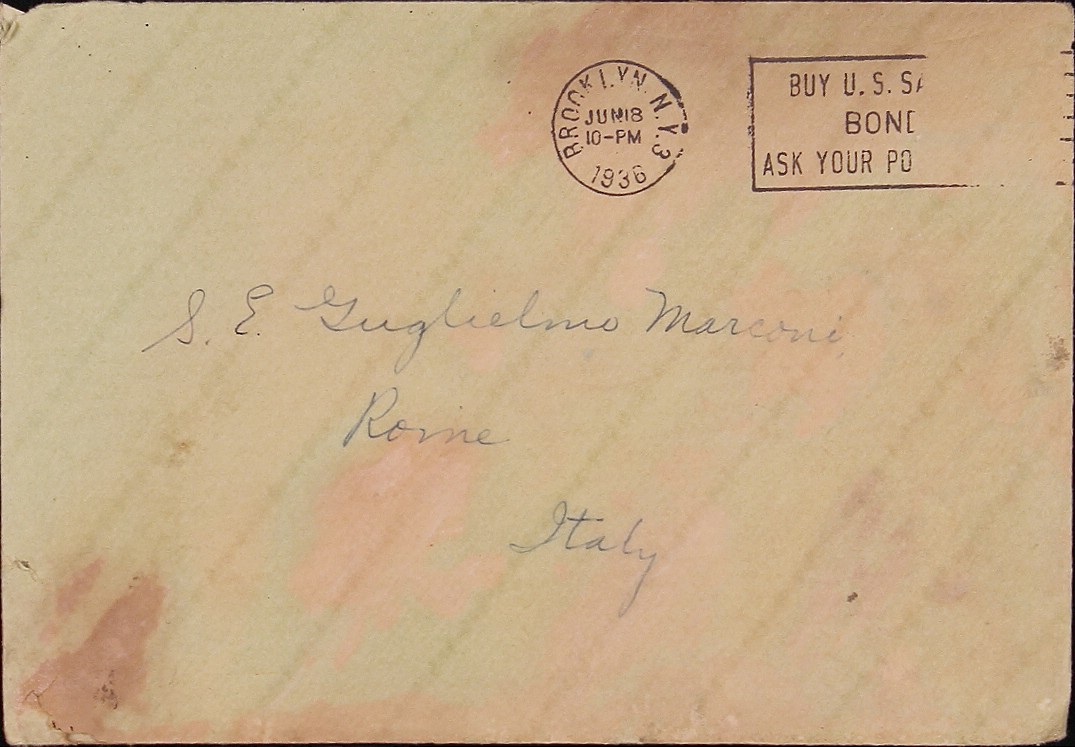 BROOKLYN, N.Y. 3
JUN 18
10-PM
1936
BUY U. S. SA
BOND
ASK YOUR PO
S. E. Guglielmo Marconi
Rome
Italy